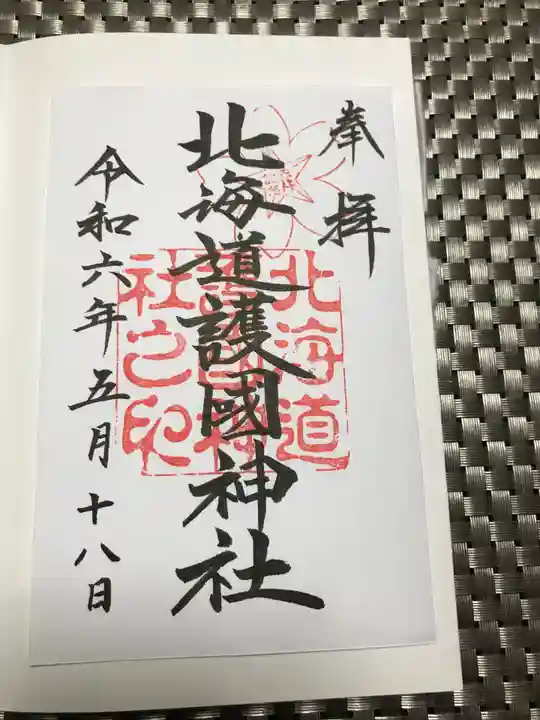 奉拝
北海道護國神社
令和六年五月十八日
北海道
護國神
社之印